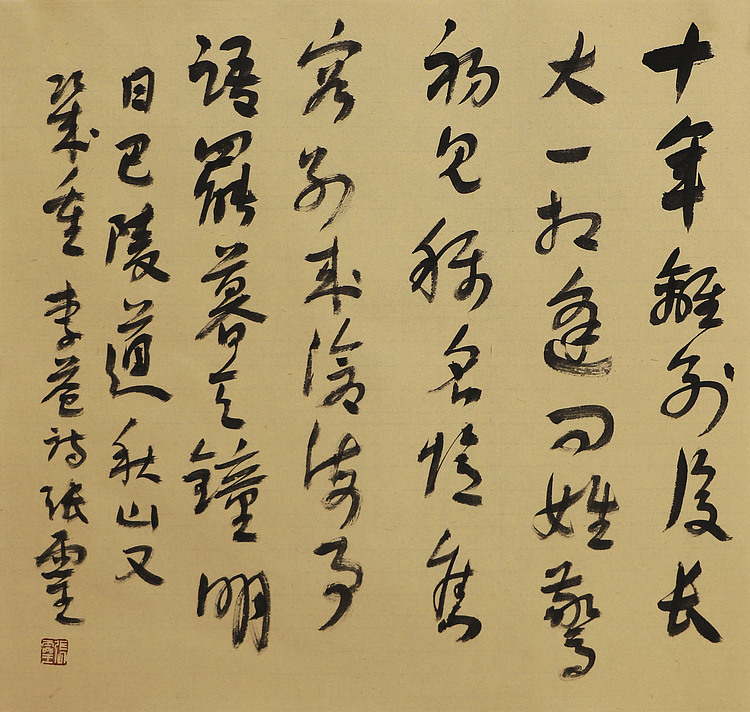 十年離別後长
大一相逢問姓驚
初見稱名憶舊
容別來滄海事
語罷暮天鐘明
日巴陵道秋山又
幾重 李益詩 張